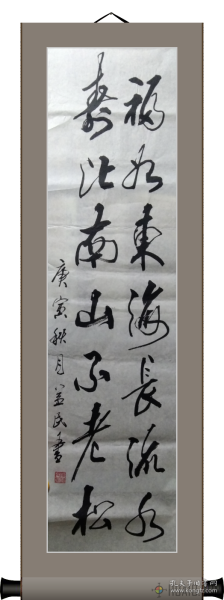 福如东海長流水
寿比南山不老松
庚寅秋月
孔夫子旧书网
www.kongfz.com